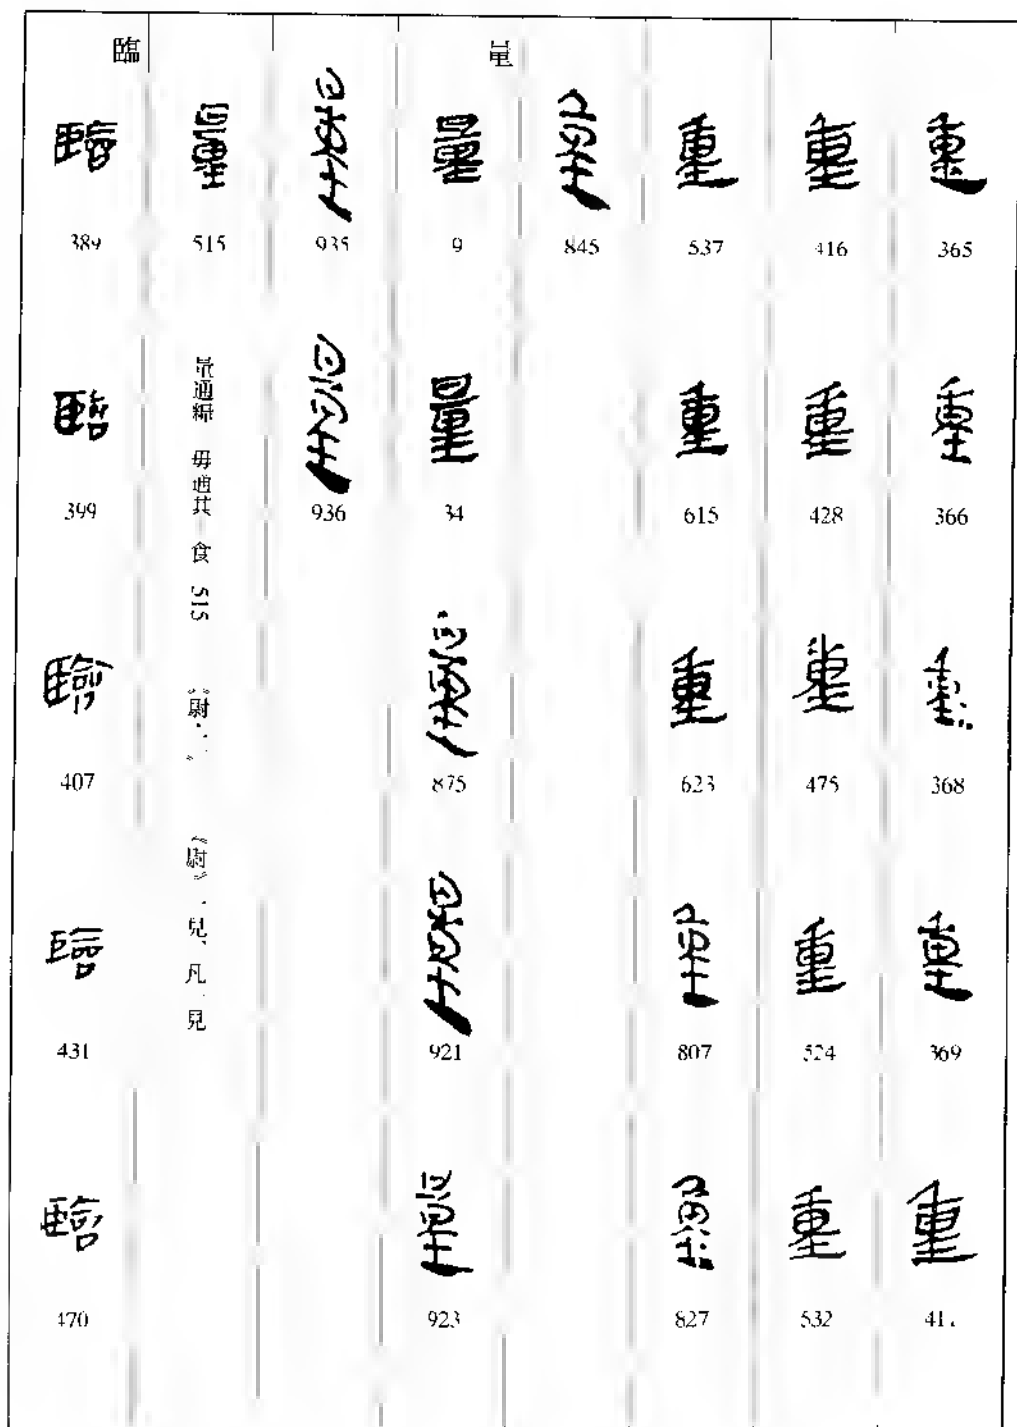 重 365
重 366
重 368
重 369
重
重 416
重 428
重 475
重 524
重 532
重 537
重 615
重 623
重 807
重 827
重 845
量
量 9
量 34
量 875
量 921
量 923
量 935
量 936
量 515
量通糧 毋通其 食 515 《尉 》 《尉》一見、凡一見
臨
臨 389
臨 399
臨 407
臨 431
臨 470